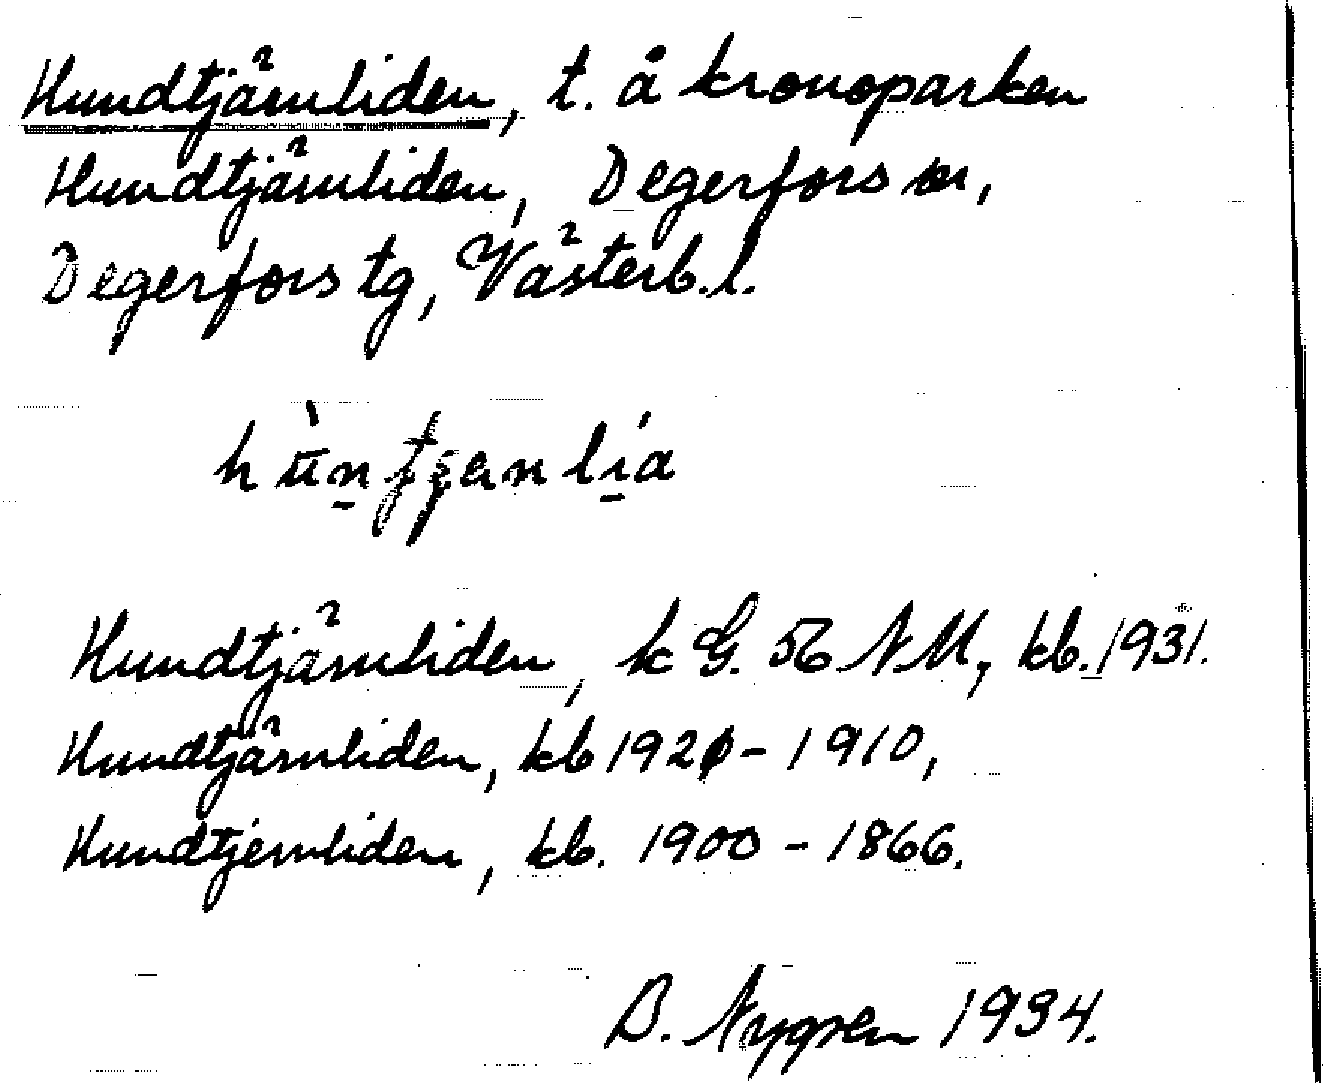 Hundtjärnliden, t. å kronoparken
Hundtjärnliden, Degerfors sn,
Degerfors tg, Västerb. l.
Hundtjärnliden, k G. 56 NM, kb. 1931.
Hundtjärnliden, kb 1920 - 1910,
Hundtjernliden, kb. 1900 - 1866.
B. Nygren 1934.